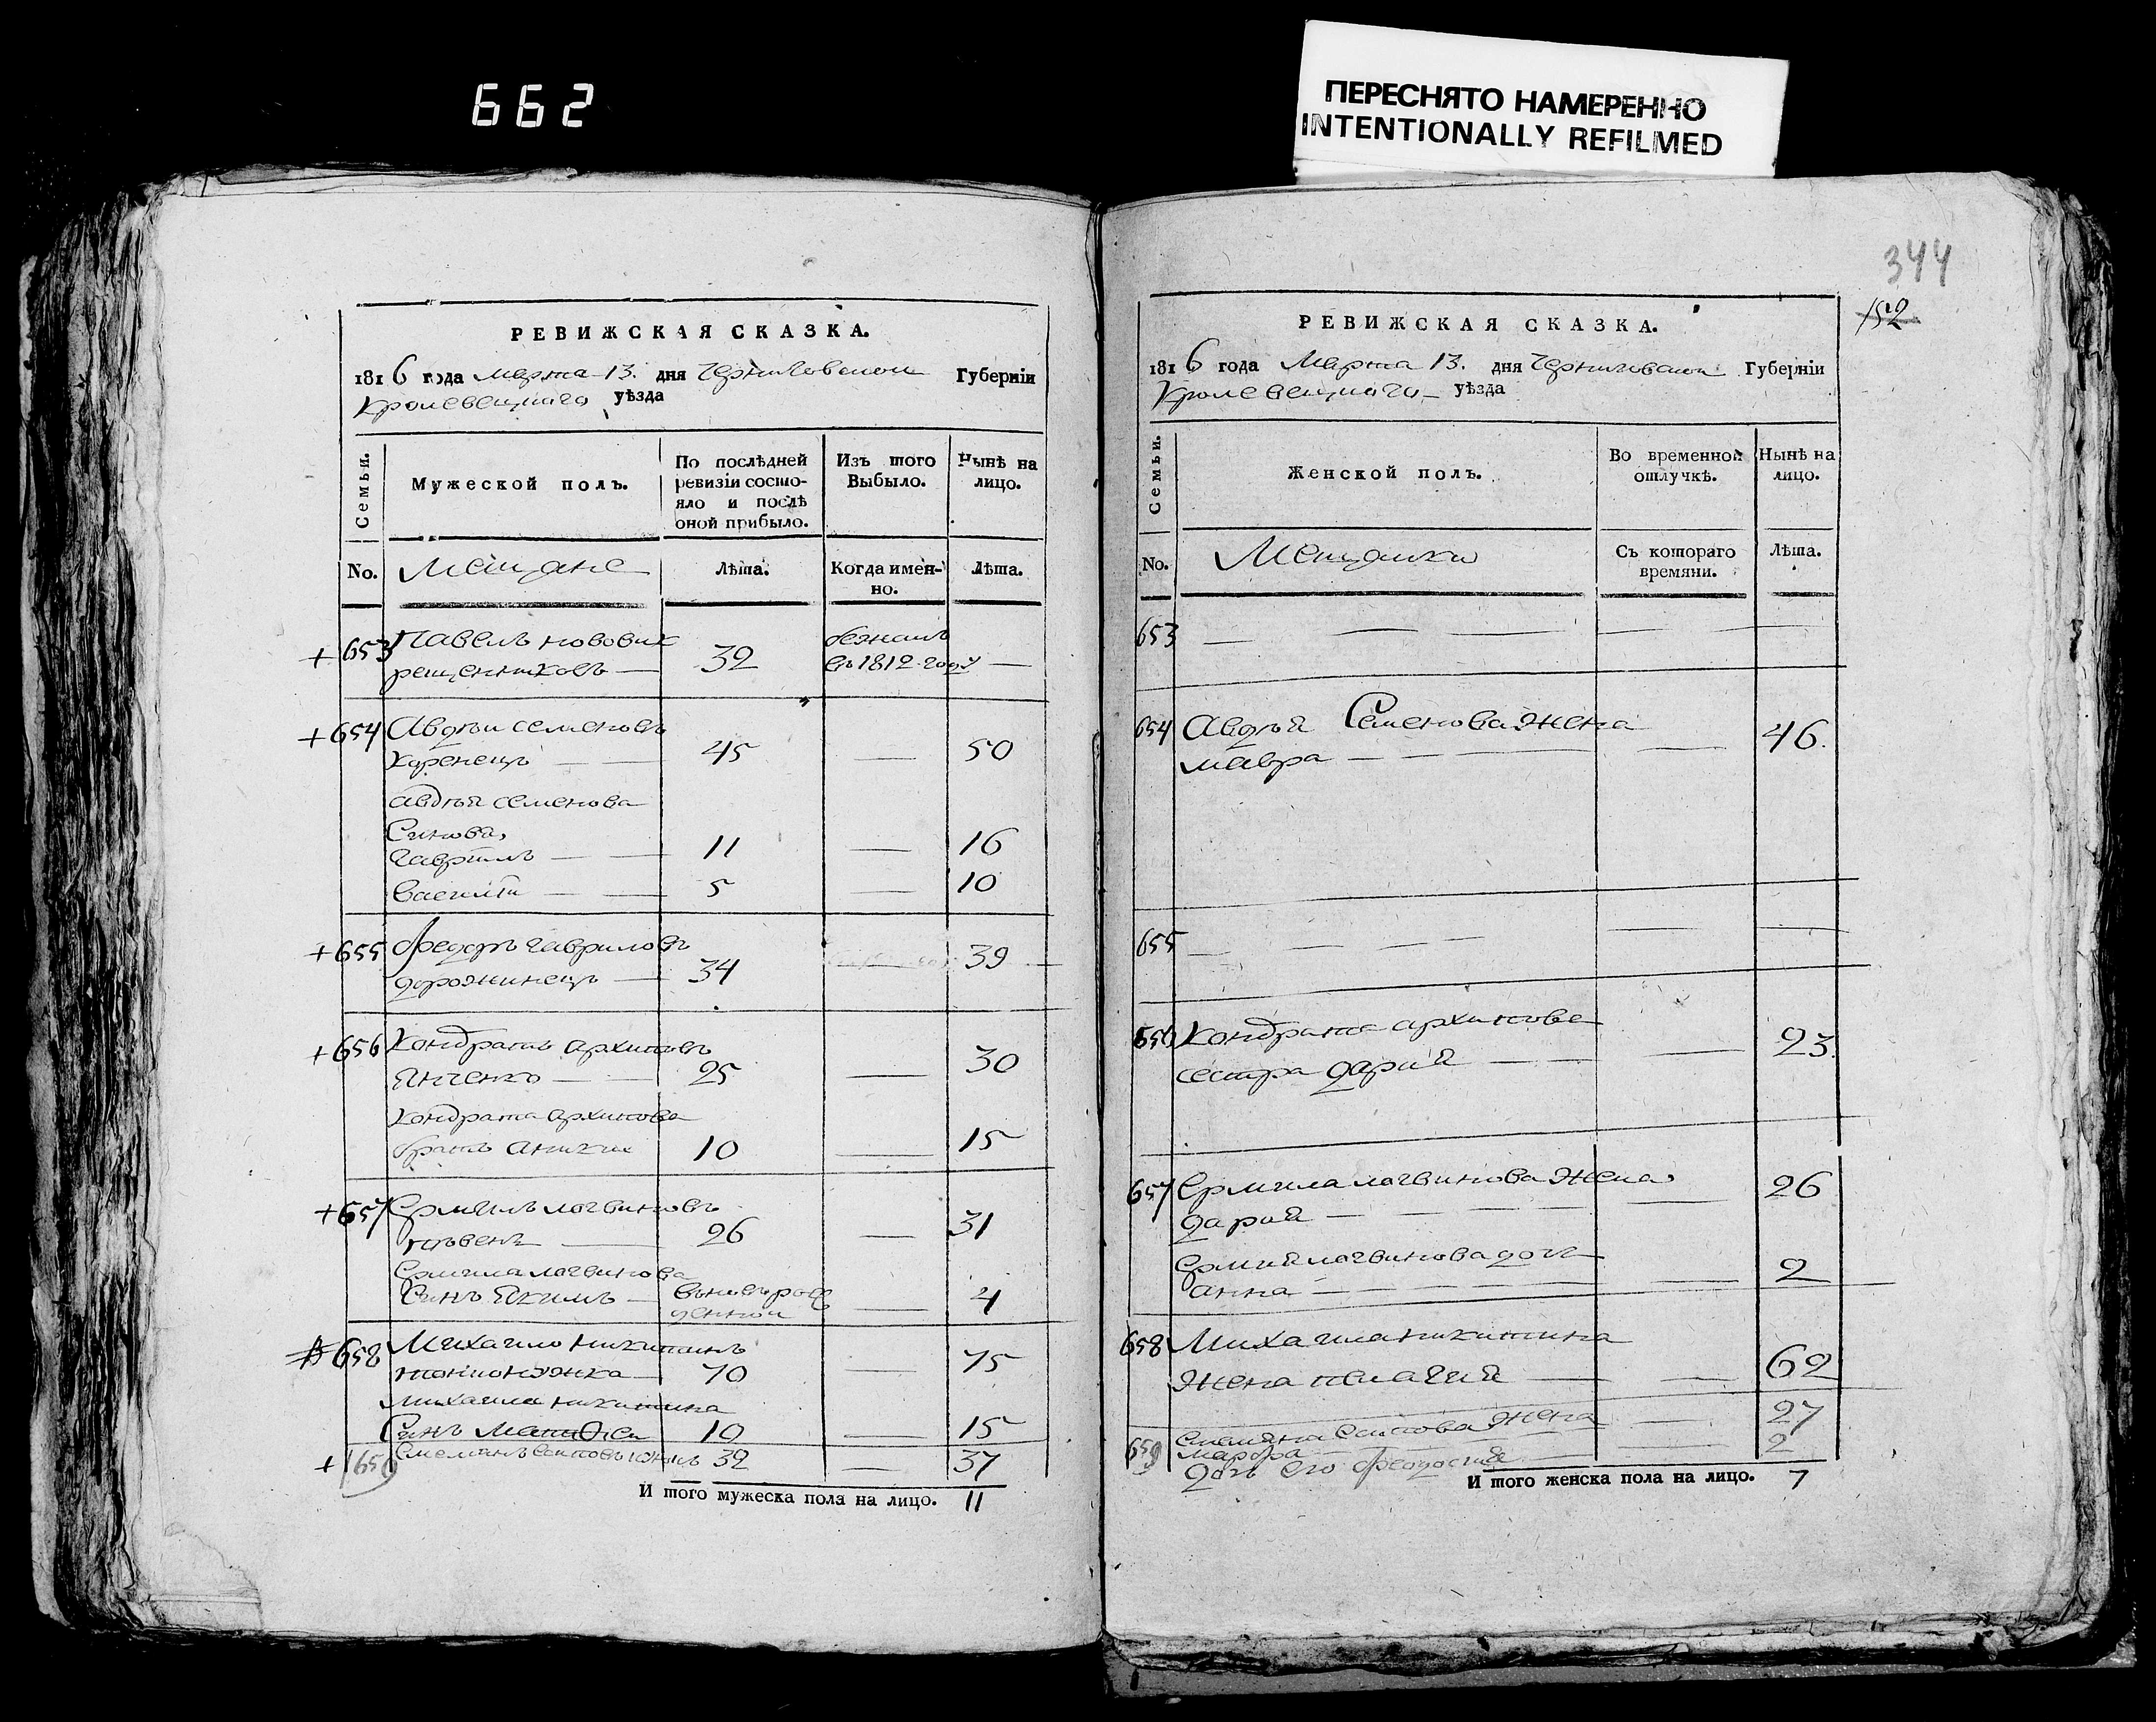 662
ПЕРЕСНЯТО НАМЕРЕННО
INTENTIONALLY REFILMED
РЕВИЖСКАЯ СКАЗКА.
1816 года марта 13. дня Черниговской Губерніи
Кролевецкаго уѣзда
Семьи.
Мужеской полъ.
По послѣдней ревизіи состо-
яло и послѣ
оной прибыло.
Изъ того
Выбыло.
Нынѣ на
лицо.
No.
Мещане
Лѣта.
Когда имен-
но.
Лѣта.
+ 653 Павелъ новових
рещенниковъ — 32 бежалъ
въ 1812 году —
+ 654 Авдѣй семеновъ
Куренецъ — — 45 — 50
авдѣй семенова
Синова,
гаврилъ — — 11 — 16
василій — — 5 — 10
+ 655 Федоръ гавриловъ
дорожинецъ — 34 — 39
+ 656 Кондратъ архиповъ
Янченко — — 25 — 30
кондрата архипова
братъ аникий 10 — 15
+ 657 Ермилъ логвиновъ
— 26 — 31
Ермила логвинова
Синъ Якимъ — вьновьрож
денной — 4
658 Михаило никитинъ
70 — 75
михаила никитина
Синъ Матвей 10 — 15
+ 659 32 — 37
И того мужеска пола на лицо. 11
344
152
РЕВИЖСКАЯ СКАЗКА.
1816 года Марта 13. дня Черниговской Губерніи
Кролевецкаго уѣзда
Семьи.
Женской полъ.
Во временной
отлучкѣ.
Нынѣ на
лицо.
No.
Мещанки
Съ котораго
времяни.
Лѣта.
653 — — — — — —
654 Авдѣя Семенова жена
мавра — — — — 46.
655 — — — — — —
656 Кондрата архипова
сестра дария — — — 23.
657 Ермила логвинова жена
дария — — — — — 26
Ермила логвинова дочь
анна — — — — — 2
658 Михаила никитина
жена пелагия — — 62
659 жена — 27
марфа — — 2
дочь его феодосия
И того женска пола на лицо. 7